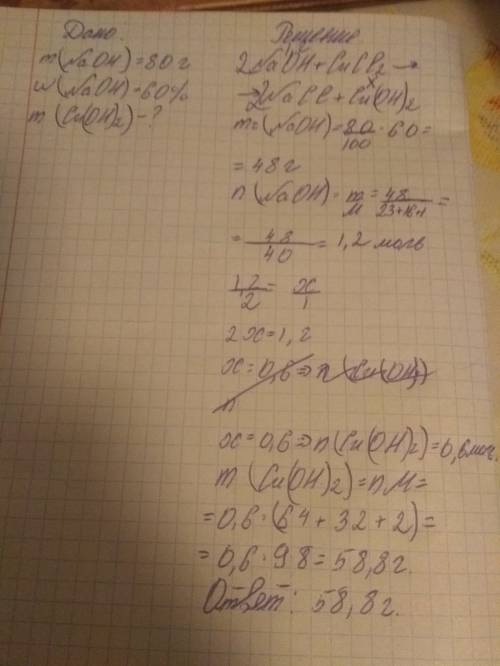 Дано:
m(NaOH)=80г
w(NaOH)=60%
m(Cu(OH)₂)-?
Решение
2NaOH+CuCl₂→
x
→2NaCl+Cu(OH)₂
m₂(NaOH)=80/100·60=
=48г
n(NaOH)=m/M=48/23+16+1=
=48/40=1,2 моль
1,2/2=x/1
2x=1,2
x=0,6⇒n(Cu(OH)₂)
n
x=0,6⇒n(Cu(OH)₂)=0,6моль.
m(Cu(OH)₂)=nM=
=0,6·(64+32+2)=
=0,6·98=58,8г.
Ответ: 58,8г.